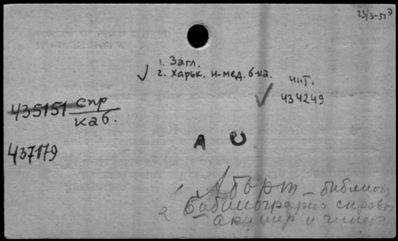 23/3-57
1. Загл.
2. Харьк. н-мед. б-ка.
чит.
434249
435151 спр
каб.
437179
А
1 Аборт — библиогр
2 Библиография справоч
акушер и гинек